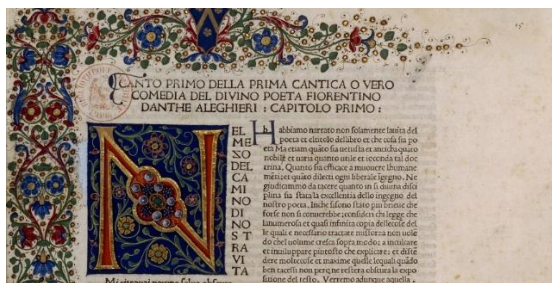 CANTO PRIMO DELLA PRIMA CANTICA O VERO
COMEDIA DEL DIVINO POETA FIORENTINO
DANTHE ALEGHIERI : CAPITOLO PRIMO :
N
EL
ME
ZO
DEL
CA
MI
NO
DI
NO
S T
R A
V I
T A
Mi ritrovai
habbiamo narrato non solamente la uita del
poeta et el titolo del libro et che cosa sia po
eta Ma etiam quãto sia uetusta et anticha quãto
nobile et uaria quanto utile et ioconda tal doc
trina. Quanto sia efficace a muouere lhumane
menti: et quãto dilecti ogni liberale igegno. Ne
giudicammo da tacere quanto in si diuina disci
plina sia stata la excellentia dello ingegno del
nostro poeta. Inche sisono stato piu brieue che
forse non si conuerrebbe: consideri chi legge che
lanumerosa et quasi infinita copia delle cose del
le quali e necessario tractare misforza non uolẽ
do chel uolume cresca sopra modo: a inculcare
et inuiluppare piutosto che explicare: et distẽ
dere molte cose et maxime quelle lequali quãdo
ben tacessi non pero ne restera obscura la expo
sitione del testo. Verremo adunque aquella.